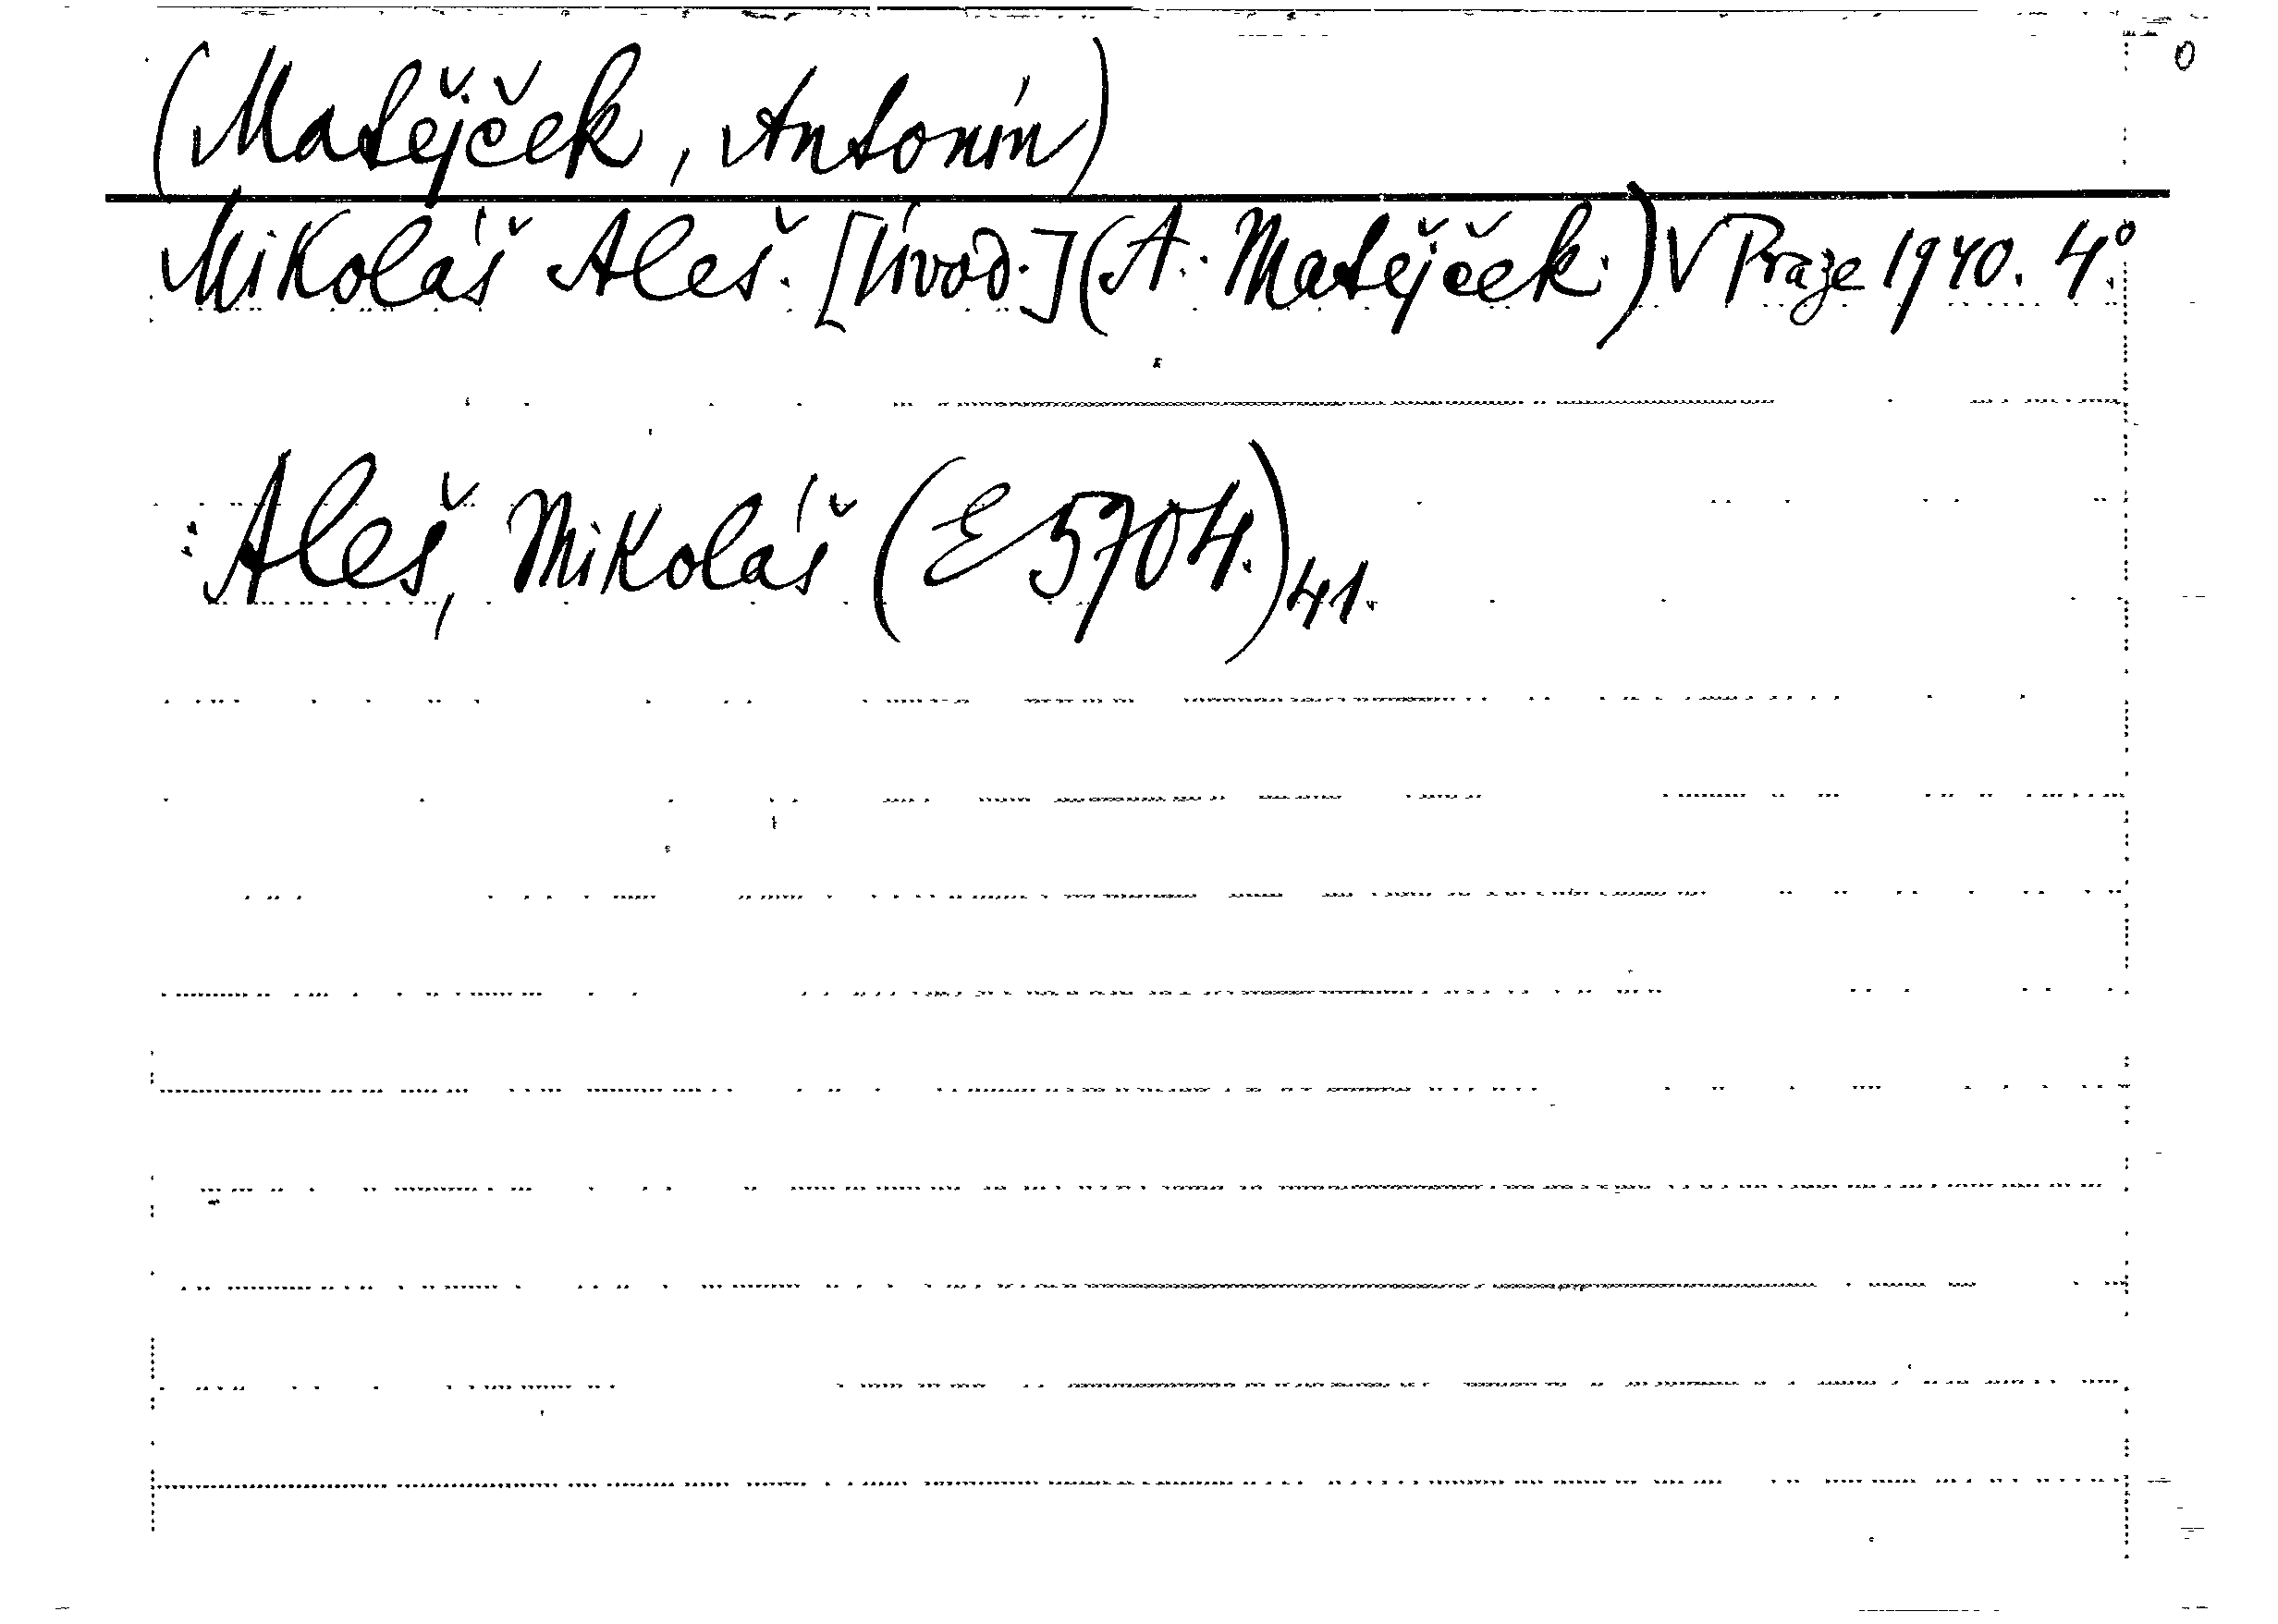 (Matějček, Antonín)
Mikoláš Aleš. [Úvod.] (A. Matějček.) V Praze 1940. 4°.
Aleš, Mikoláš (E 5704.) 41.